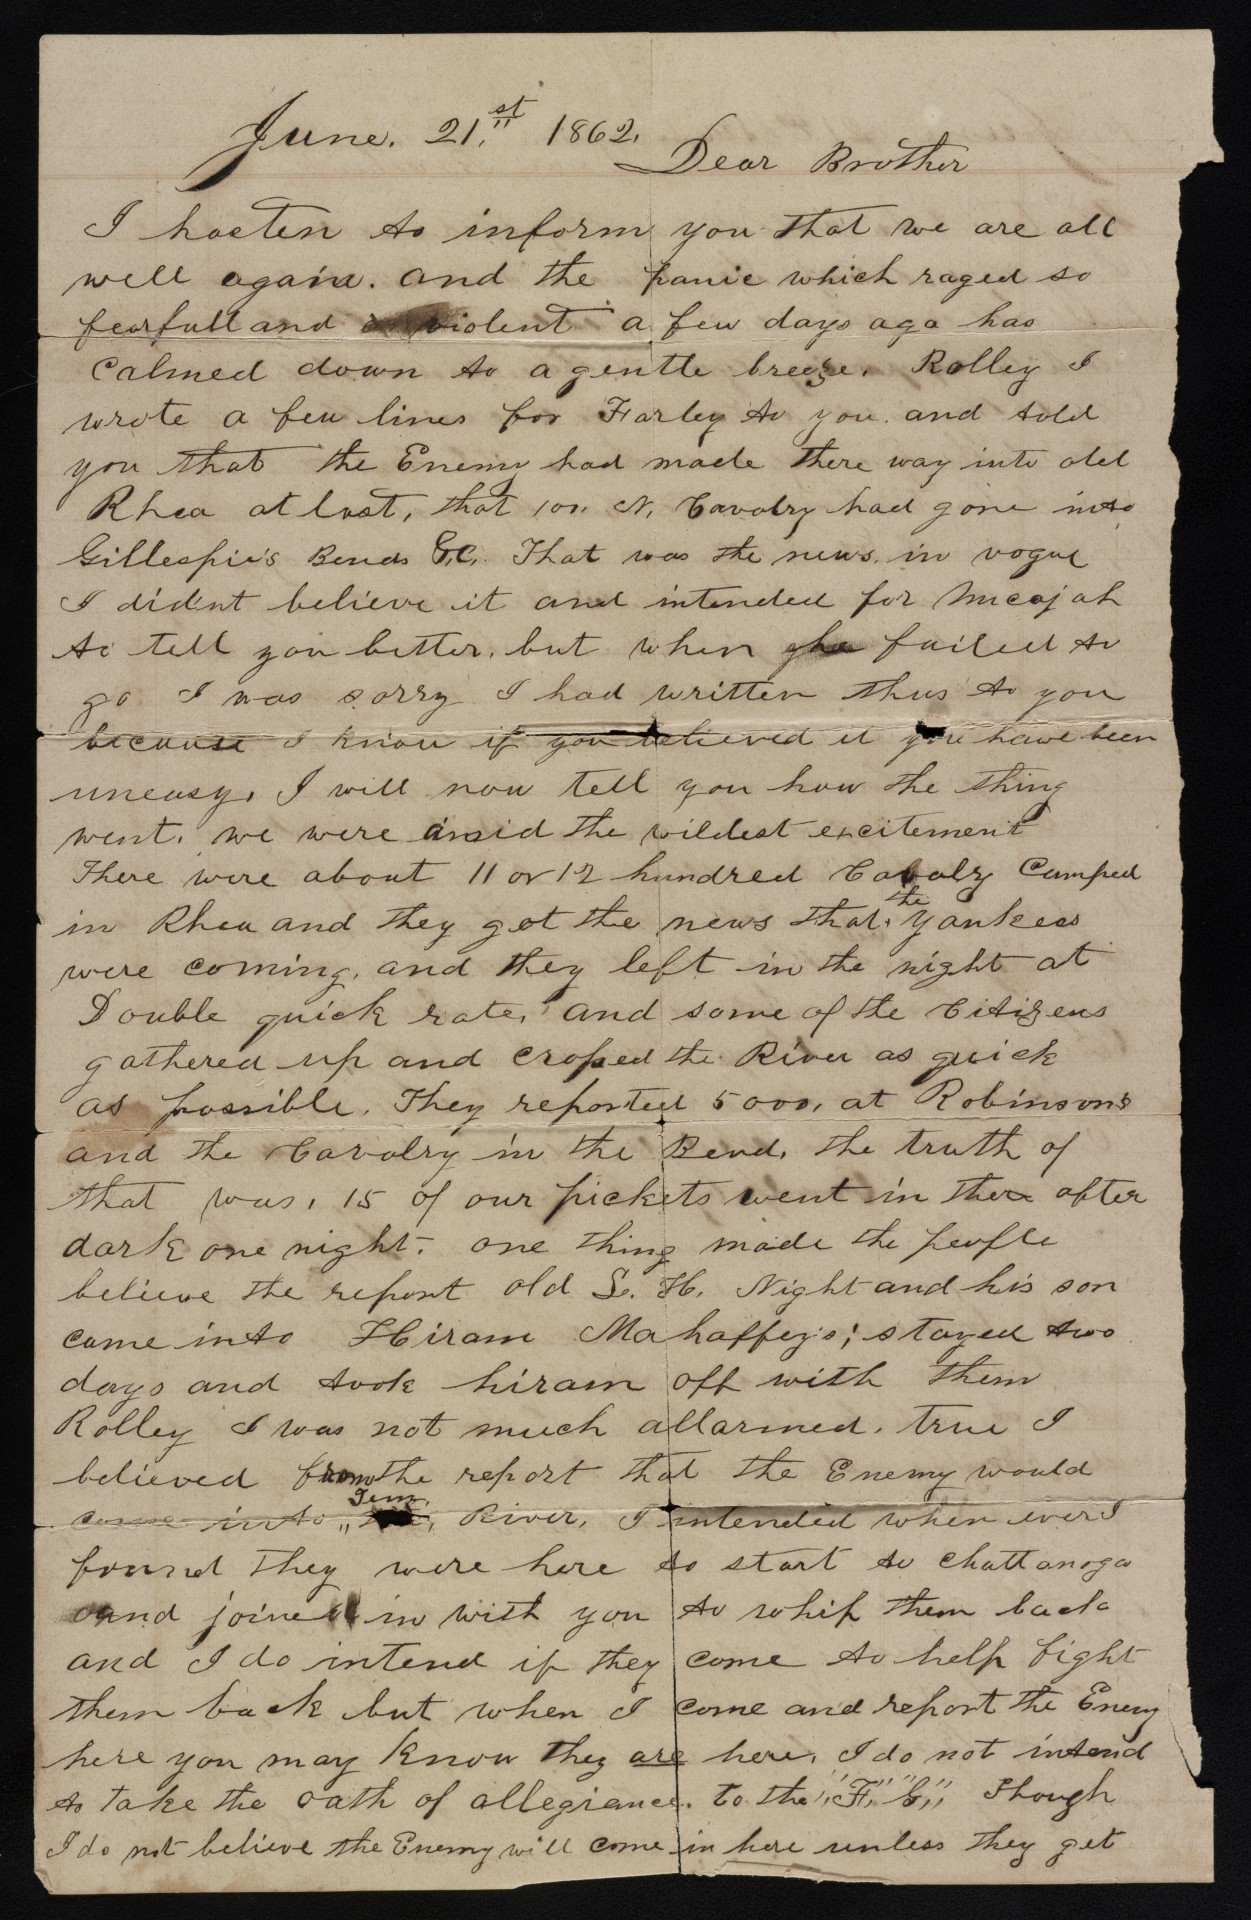 June. 21.st 1862.
Dear Brother
I hasten to inform you that we are all
well again. and the panic which raged so
fearfull and violent a few days ago has
calmed down to a gentle breeze. Rolley I
wrote a few lines for Farley to you. and told
you that the Enemy had made there way into old
Rhea at last, that 100. N. Cavalry had gone into
Gillespie's Bends &C. That was the news. in vogue
I didn't believe it and intended for Micajah
to tell you better. but when he failed to
go I was sorry I had written thus to you
because I know if you believed it you have been
uneasy. I will now tell you how the thing
went. we were amid the wildest excitement
There were about 11 or 12 hundred Cavalry Camped
in Rhea and they got the news that the Yankees
were coming, and they left in the night at
Double quick rate, and some of the Citizens
gathered up and crossed the River as quick
as possible. They reported 5000, at Robinson's
and the Cavalry in the Bend. the truth of
that was, 15 of our pickets went in there after
dark one night. one thing made the people
believe the report old S. H. Night and his son
came into Hiram Mahaffey's; stayed two
days and took hiram off with them
Rolley I was not much allarmed. true I
believed from the report that the Enemy would
come into Tenn. River, I intended when ever I
found they were here to start to Chattanoga
and join in with you to whip them back
and I do intend if they come to help fight
them back but when I come and report the Enemy
here you may know they are here. I do not intend
to take the oath of allegiance. to the "F," "G," Though
I do not believe the Enemy will come in here unless they get